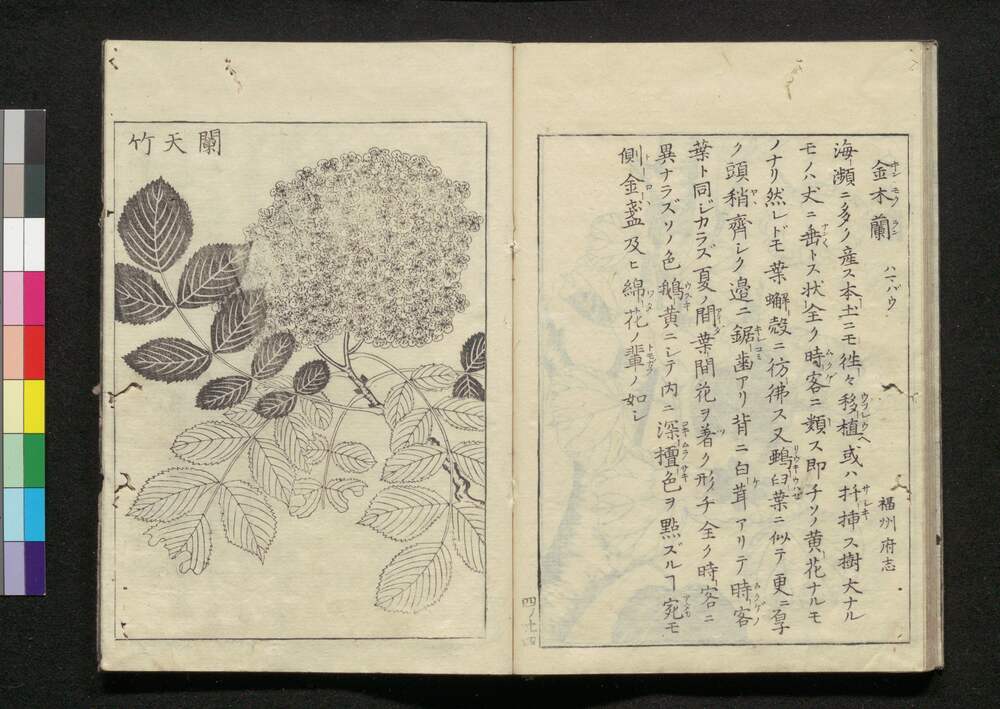 金木蘭 ハマバウ 福州府志
海瀕ニ多ク産ス本土ニモ徃々移植或ハ扦揷ス樹大ナル
モノハ丈ニ垂トス状全ク時客ニ類ス即チソノ黄花ナルモ
ノナリ然レドモ葉蠏殻ニ彷彿ス又鵶臼葉ニ似テ更ニ厚
ク頭稍齊シク邉ニ鋸齒アリ背ニ白茸アリテ時客
葉ト同ジカラズ夏ノ間葉間花ヲ著ク形チ全ク時客ニ
異ナラズソノ色鵝黄ニシテ内ニ深檀色ヲ點ズルヿ宛モ
側金盞及ヒ綿花ノ輩ノ如シ
四ノ七四
闌天竹